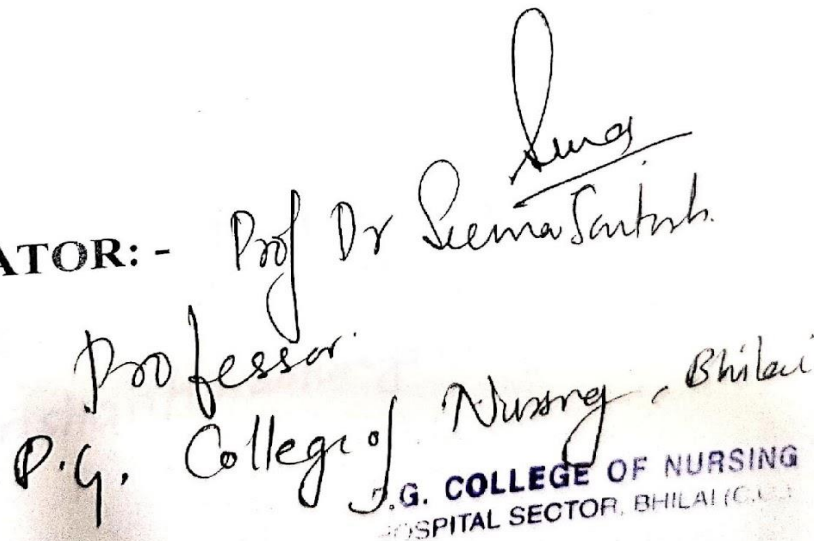 Seema
ATOR: - Prof Dr Seema Santosh.
Professor.
P.G. College of Nursing, Bhilai
.G. COLLEGE OF NURSING
HOSPITAL SECTOR, BHILAI (C.G.)